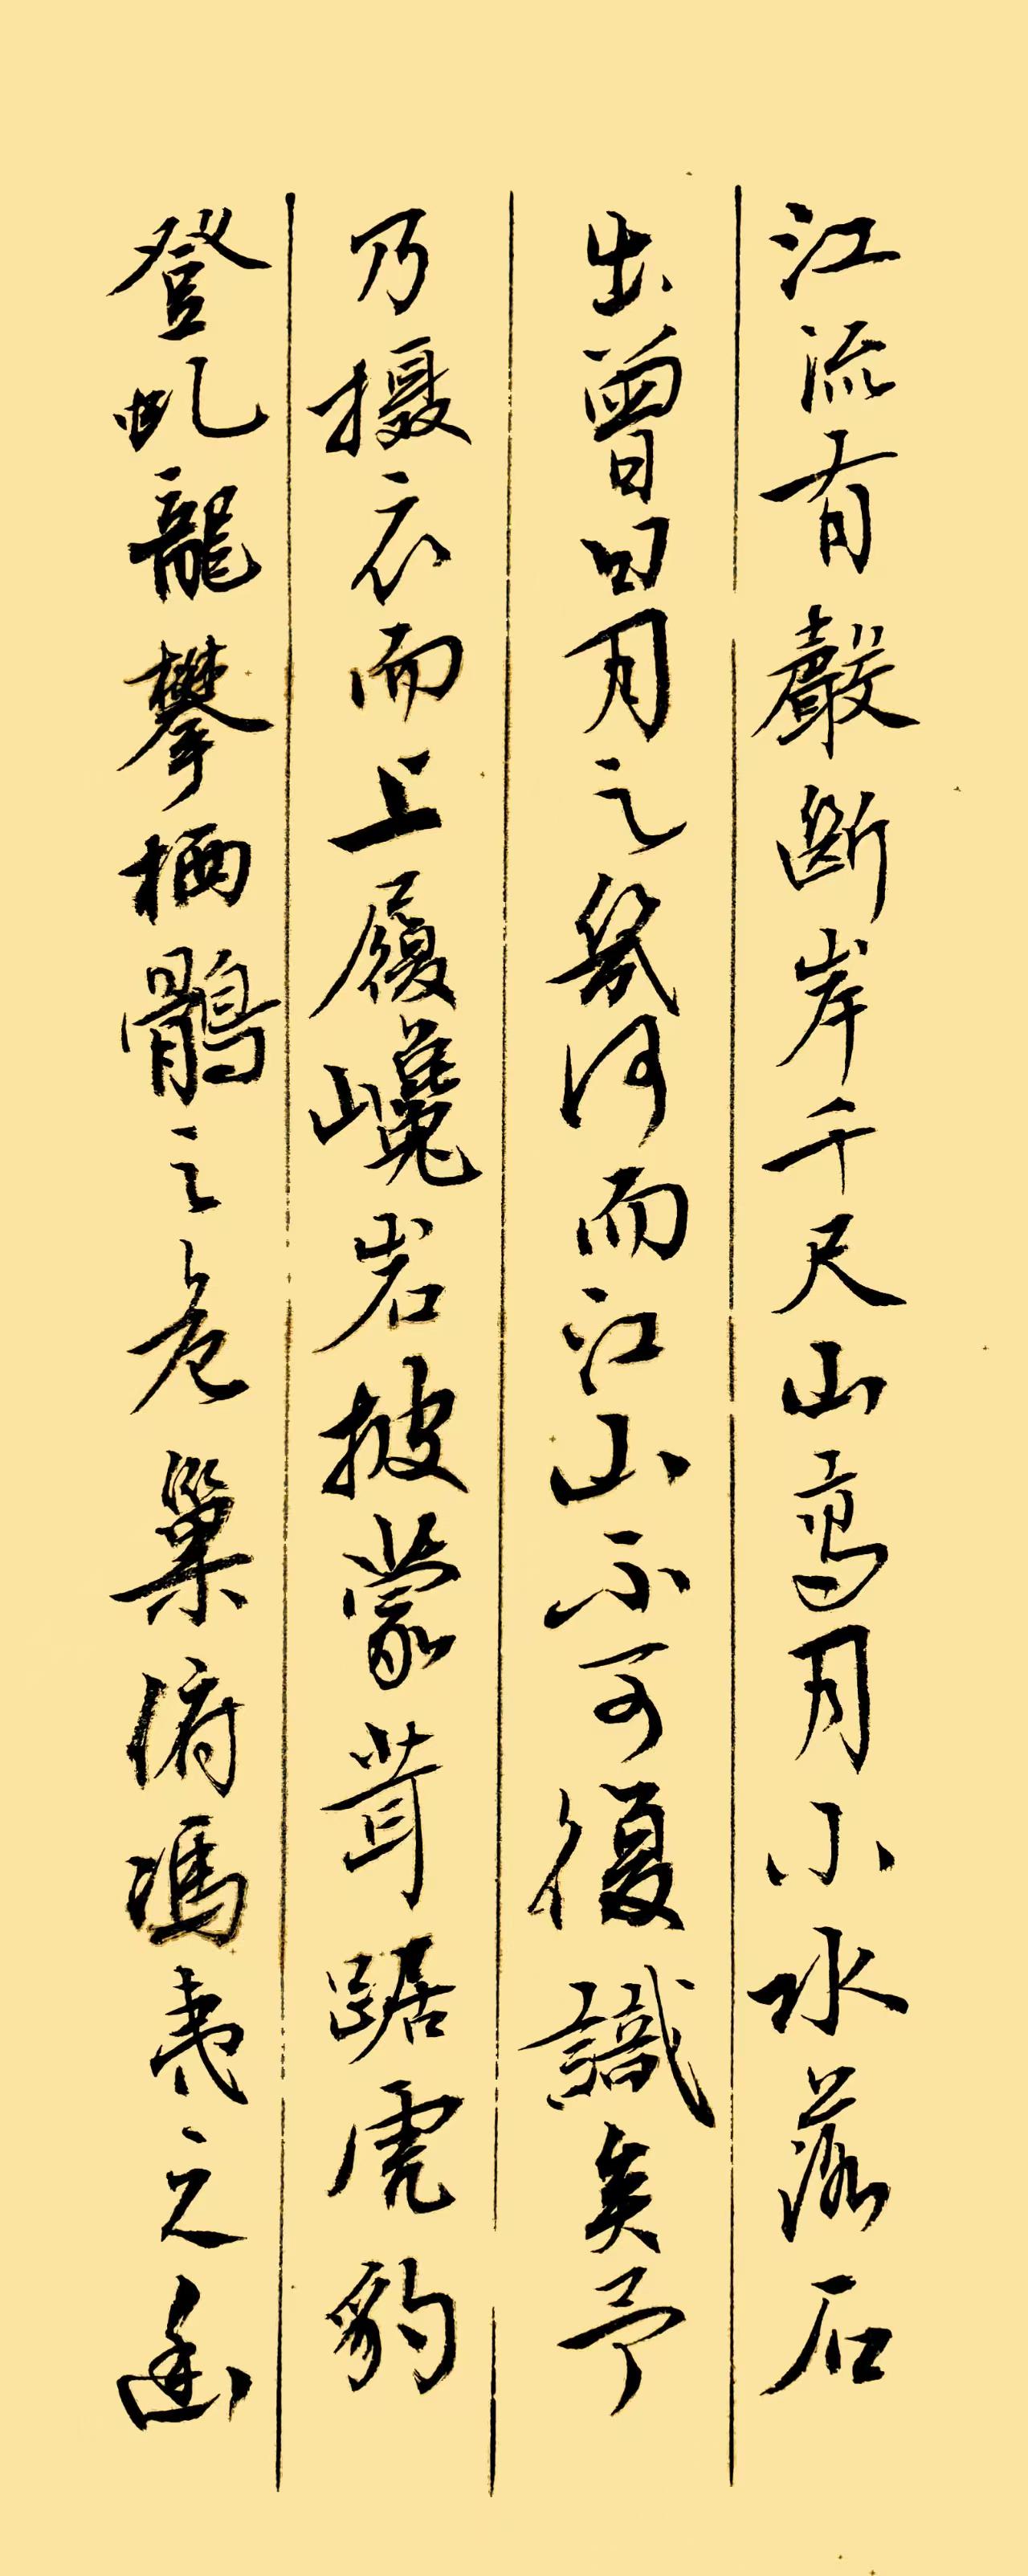 江流有聲斷岸千尺山高月小水落石
出曾日月之幾何而江山不可復識矣予
乃攝衣而上履巉岩披蒙茸踞虎豹
登虬龍攀栖鶻之危巢俯馮夷之幽